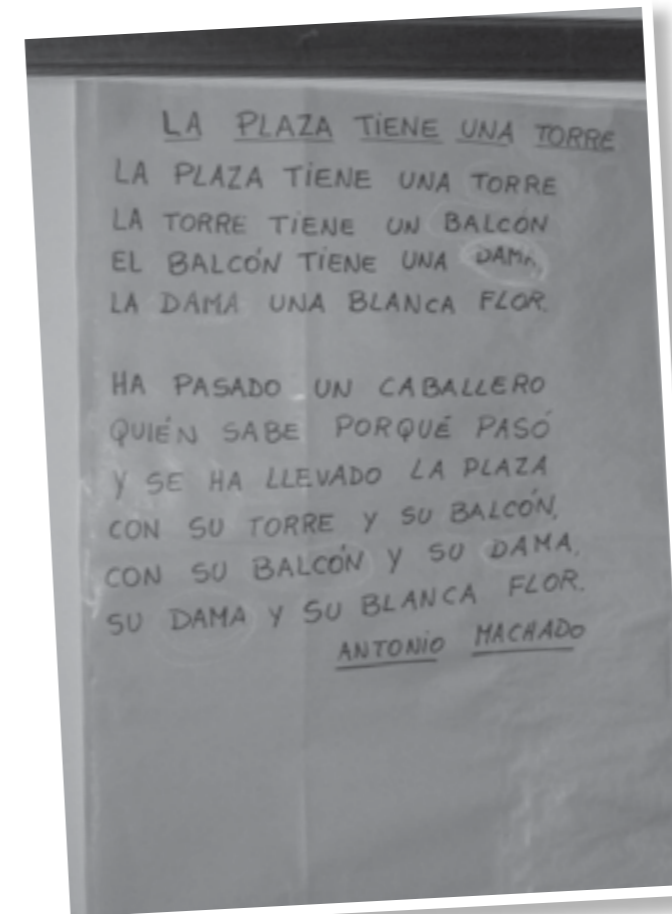 LA PLAZA TIENE UNA TORRE
LA PLAZA TIENE UNA TORRE
LA TORRE TIENE UN BALCÓN
EL BALCÓN TIENE UNA DAMA
LA DAMA UNA BLANCA FLOR.
HA PASADO UN CABALLERO
QUIÉN SABE PORQUÉ PASÓ
Y SE HA LLEVADO LA PLAZA
CON SU TORRE Y SU BALCÓN,
CON SU BALCÓN Y SU DAMA,
SU DAMA Y SU BLANCA FLOR.
ANTONIO MACHADO